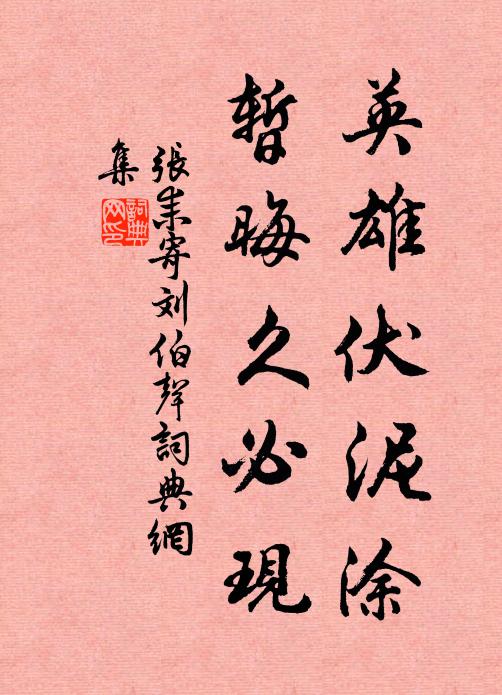 英雄伏泥涂
暫晦久必現
張耒寄刘伯聲詞典網
集
詞典網印